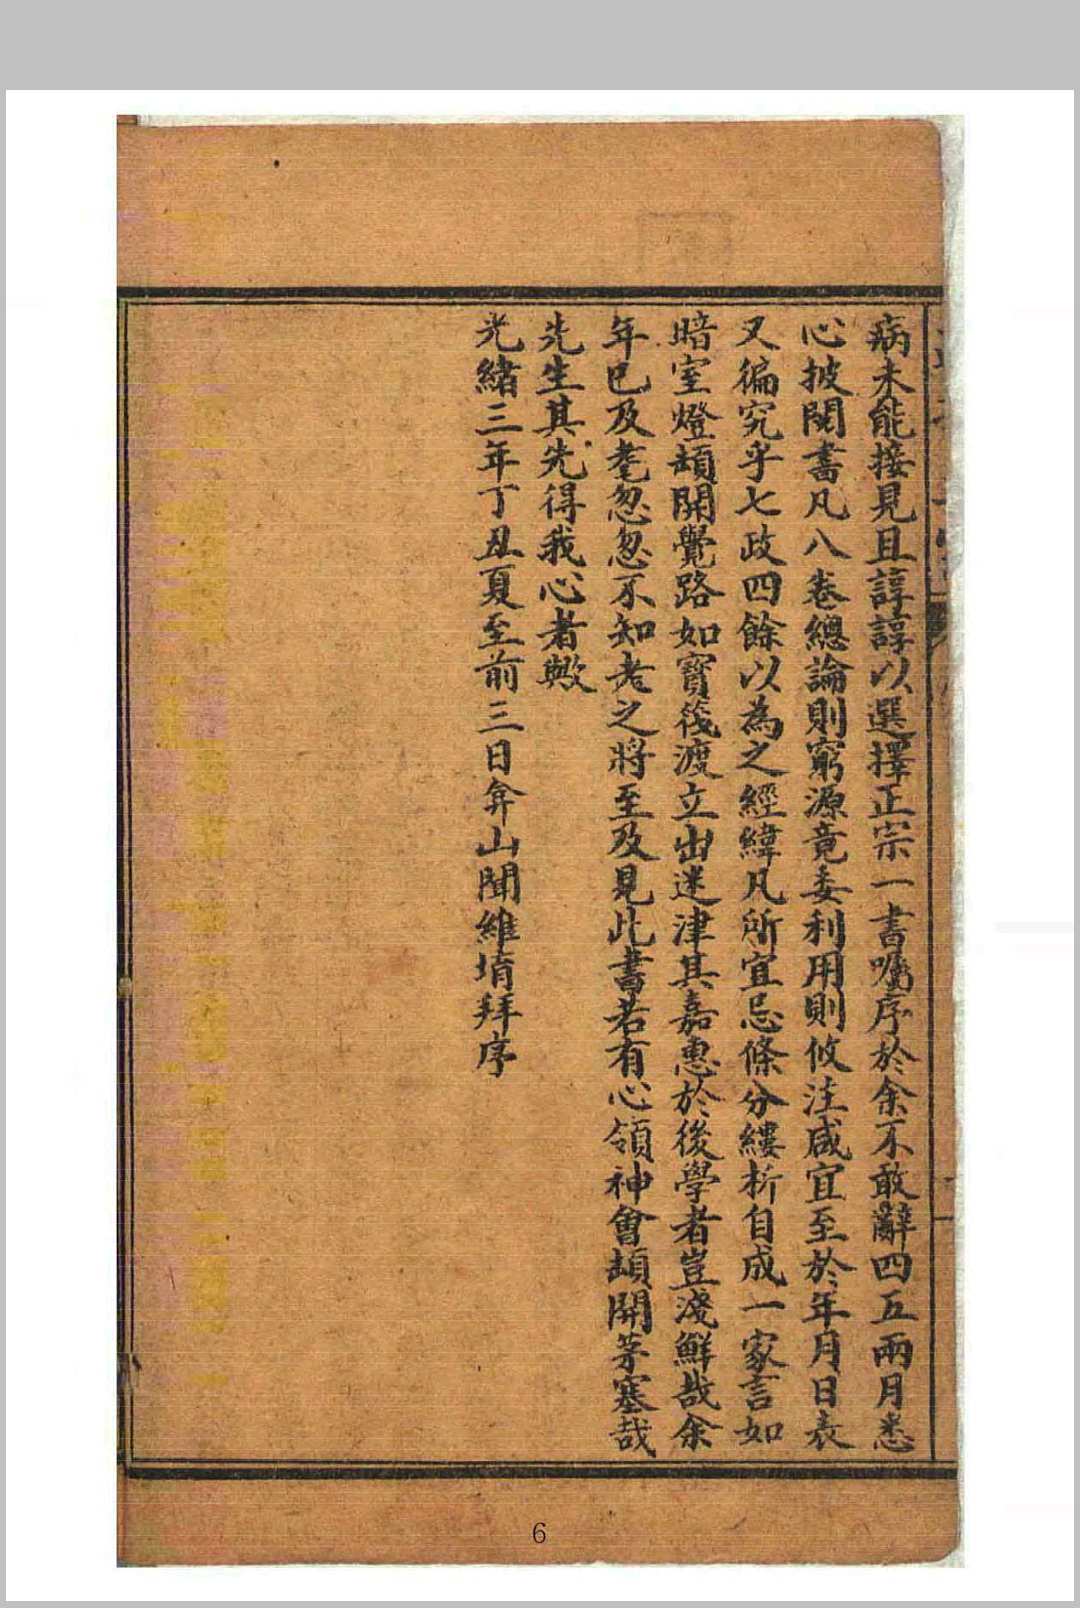 病未能接見且諄諄以選擇正宗一書囑序於余不敢辭四五兩月悉
心披閱書凡八卷總論則窮源竟委利用則攸注咸宜至於年月日表
又徧究乎七政四餘以為之經緯凡所宜忌條分縷析自成一家言如
暗室燈頓開覺路如寶筏渡立出迷津其嘉惠於後學者豈淺鮮哉余
年已及耄忽忽不知老之將至及見此書若有心領神會頓開茅塞哉
先生其先得我心者歟
光緒三年丁丑夏至前三日弁山聞維堉拜序
6